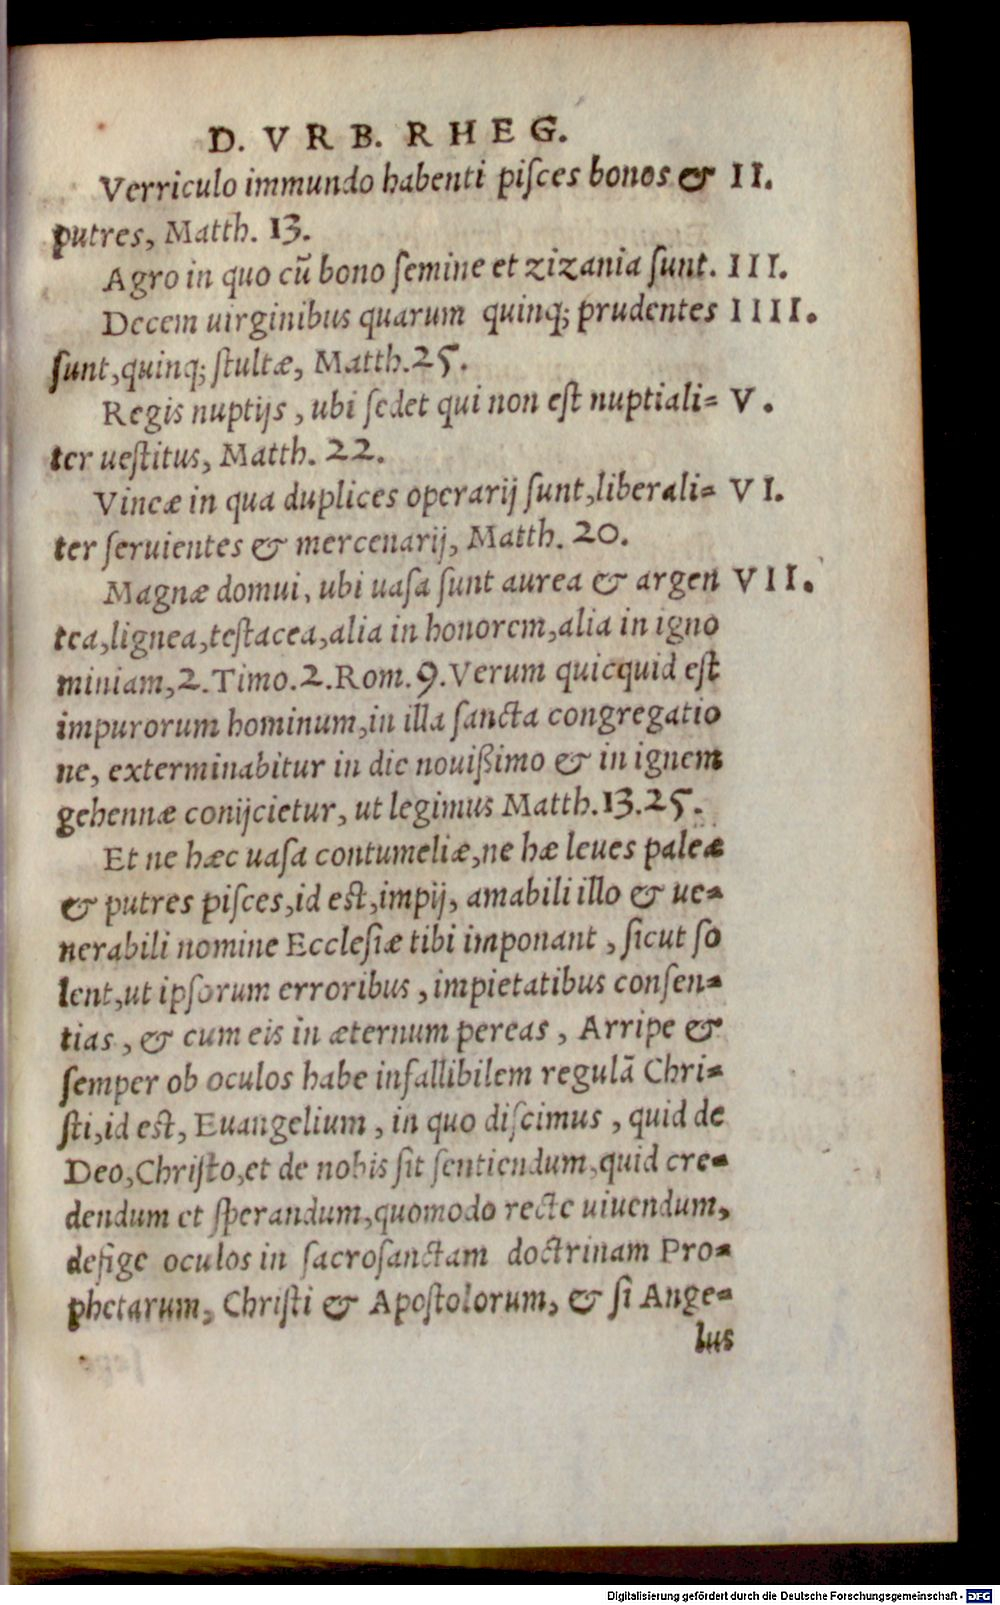 D. VRB. RHEG.
Verriculo immundo habenti piſces bonos & II.
putres, Matth. 13.
Agro in quo cū bono ſemine et zizania ſunt. III.
Decem uirginibus quarum quinq; prudentes IIII.
ſunt,quinq; ſtultæ, Matth.25.
Regis nuptijs, ubi ſedet qui non eſt nuptiali= V.
ter ueſtitus, Matth. 22.
Vineæ in qua duplices operarij ſunt,liberali= VI.
ter ſeruientes & mercenarij, Matth. 20.
Magnæ domui, ubi uaſa ſunt aurea & argen VII.
tea,lignea,teſtacea,alia in honorem,alia in igno
miniam,2.Timo.2.Rom.9.Verum quicquid eſt
impurorum hominum,in illa ſancta congregatio
ne, exterminabitur in die nouißimo & in ignem
gehennæ conijcietur, ut legimus Matth.13.25.
Et ne hæc uaſa contumeliæ,ne hæ leues paleæ
& putres piſces,id eſt,impij, amabili illo & ue=
nerabili nomine Eccleſiæ tibi imponant, ſicut ſo
lent,ut ipſorum erroribus, impietatibus conſen=
tias, & cum eis in æternum pereas, Arripe &
ſemper ob oculos habe infallibilem regulā Chri=
ſti,id eſt, Euangelium, in quo diſcimus, quid de
Deo,Chriſto,et de nobis ſit ſentiendum,quid cre=
dendum et ſperandum,quomodo recte uiuendum,
defige oculos in ſacroſanctam doctrinam Pro=
phetarum, Chriſti & Apoſtolorum, & ſi Ange=
lus
Digitalisierung gefördert durch die Deutsche Forschungsgemeinschaft - DFG